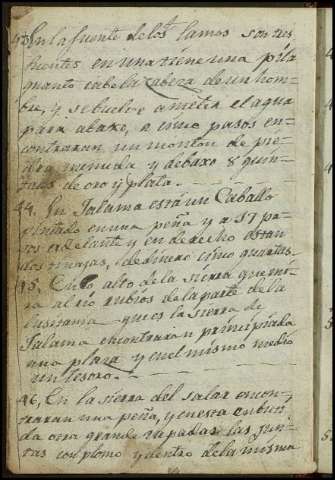 43, En la fuente de los Alamos son tres
fuentes en una tiene una pila
quanto cabe la cabeza de un hom-
bre, y se buelve a meter el agua
para abaxo, a cinco pasos en-
contraran un monton de pie-
dra menuda y debaxo 8 quin-
tales de oro y plata.
44, En Jalama está un Caballo
pintado en una peña y a 37 pa-
sos adelante y en derecho estan
dos tinajas, de dinero cinco quartas.
45, En lo alto de la sierra que mi-
ra al rio rubios de la parte de la
lusitania que es la sierra de
Jalama encontraran principiada
una plaza y en el mismo medio
un tesoro.
46, En la sierra del salar encon-
traran una peña, y en esta embuti-
da otra grande tapadas las jun-
tas con plomo y dentro de la misma